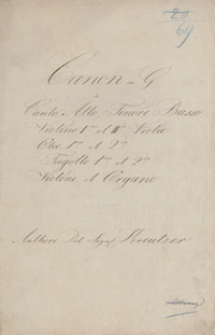 20
69
Canon in G
a
Canto Alto, Tenore Basso
Violino 1mo et IIdo Viola
Oboe 1mo et 2do
Fagotto 1mo et 2do
Violone et Organo
Authore Del Sigre Kreutzer